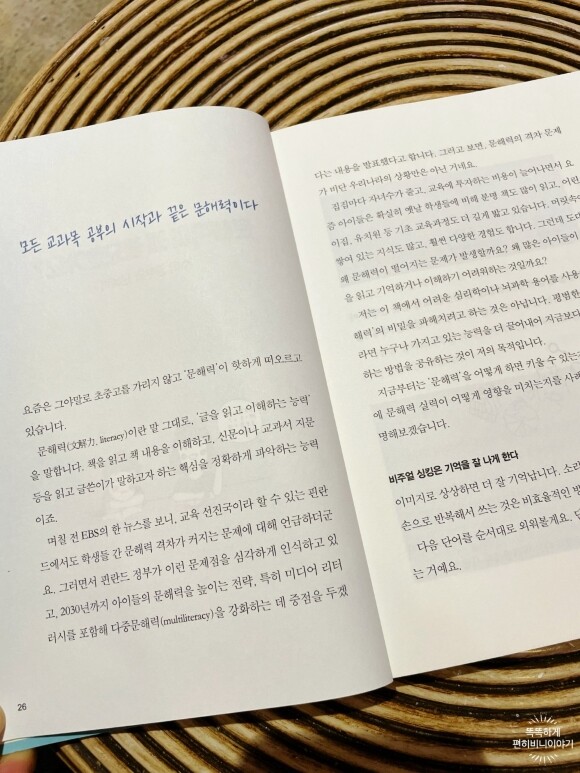 모든 교과목 공부의 시작과 끝은 문해력이다
요즘은 그야말로 초중고를 가리지 않고 '문해력'이 핫하게 떠오르고
있습니다.
문해력(文解力, literacy)이란 말 그대로, '글을 읽고 이해하는 능력'
을 말합니다. 책을 읽고 책 내용을 이해하고, 신문이나 교과서 지문
등을 읽고 글쓴이가 말하고자 하는 핵심을 정확하게 파악하는 능력
이죠.
며칠 전 EBS의 한 뉴스를 보니, 교육 선진국이라 할 수 있는 핀란
드에서도 학생들 간 문해력 격차가 커지는 문제에 대해 언급하더군
요. 그러면서 핀란드 정부가 이런 문제점을 심각하게 인식하고 있
고, 2030년까지 아이들의 문해력을 높이는 전략, 특히 미디어 리터
러시를 포함해 다중문해력(multiliteracy)을 강화하는 데 중점을 두겠
26
다는 내용을 발표했다고 합니다. 그러고 보면, 문해력의 격차 문제
가 비단 우리나라의 상황만은 아닌 거네요.
집집마다 자녀수가 줄고, 교육에 투자하는 비용이 늘어나면서 요
즘 아이들은 확실히 옛날 학생들에 비해 분명 책도 많이 읽고, 어린
이집, 유치원 등 기초 교육과정도 더 길게 밟고 있습니다. 머릿속에
쌓여 있는 지식도 많고, 훨씬 다양한 경험도 합니다. 그런데 도
왜 문해력이 떨어지는 문제가 발생할까요? 왜 많은 아이들이
을 읽고 기억하거나 이해하기 어려워하는 것일까요?
저는 이 책에서 어려운 심리학이나 뇌과학 용어를 사용
해력'의 비밀을 파헤치려고 하는 것은 아닙니다. 평범한
라면 누구나 가지고 있는 능력을 더 끌어내어 지금보다
하는 방법을 공유하는 것이 저의 목적입니다.
지금부터는 '문해력'을 어떻게 하면 키울 수 있는
에 문해력 실력이 어떻게 영향을 미치는지를 사례
명해보겠습니다.
비주얼 싱킹은 기억을 잘 나게 한다
이미지로 상상하면 더 잘 기억납니다. 소리
손으로 반복해서 쓰는 것은 비효율적인 방
다음 단어를 순서대로 외워볼게요. 단
는 거예요.
똑똑하게
편히비니이야기